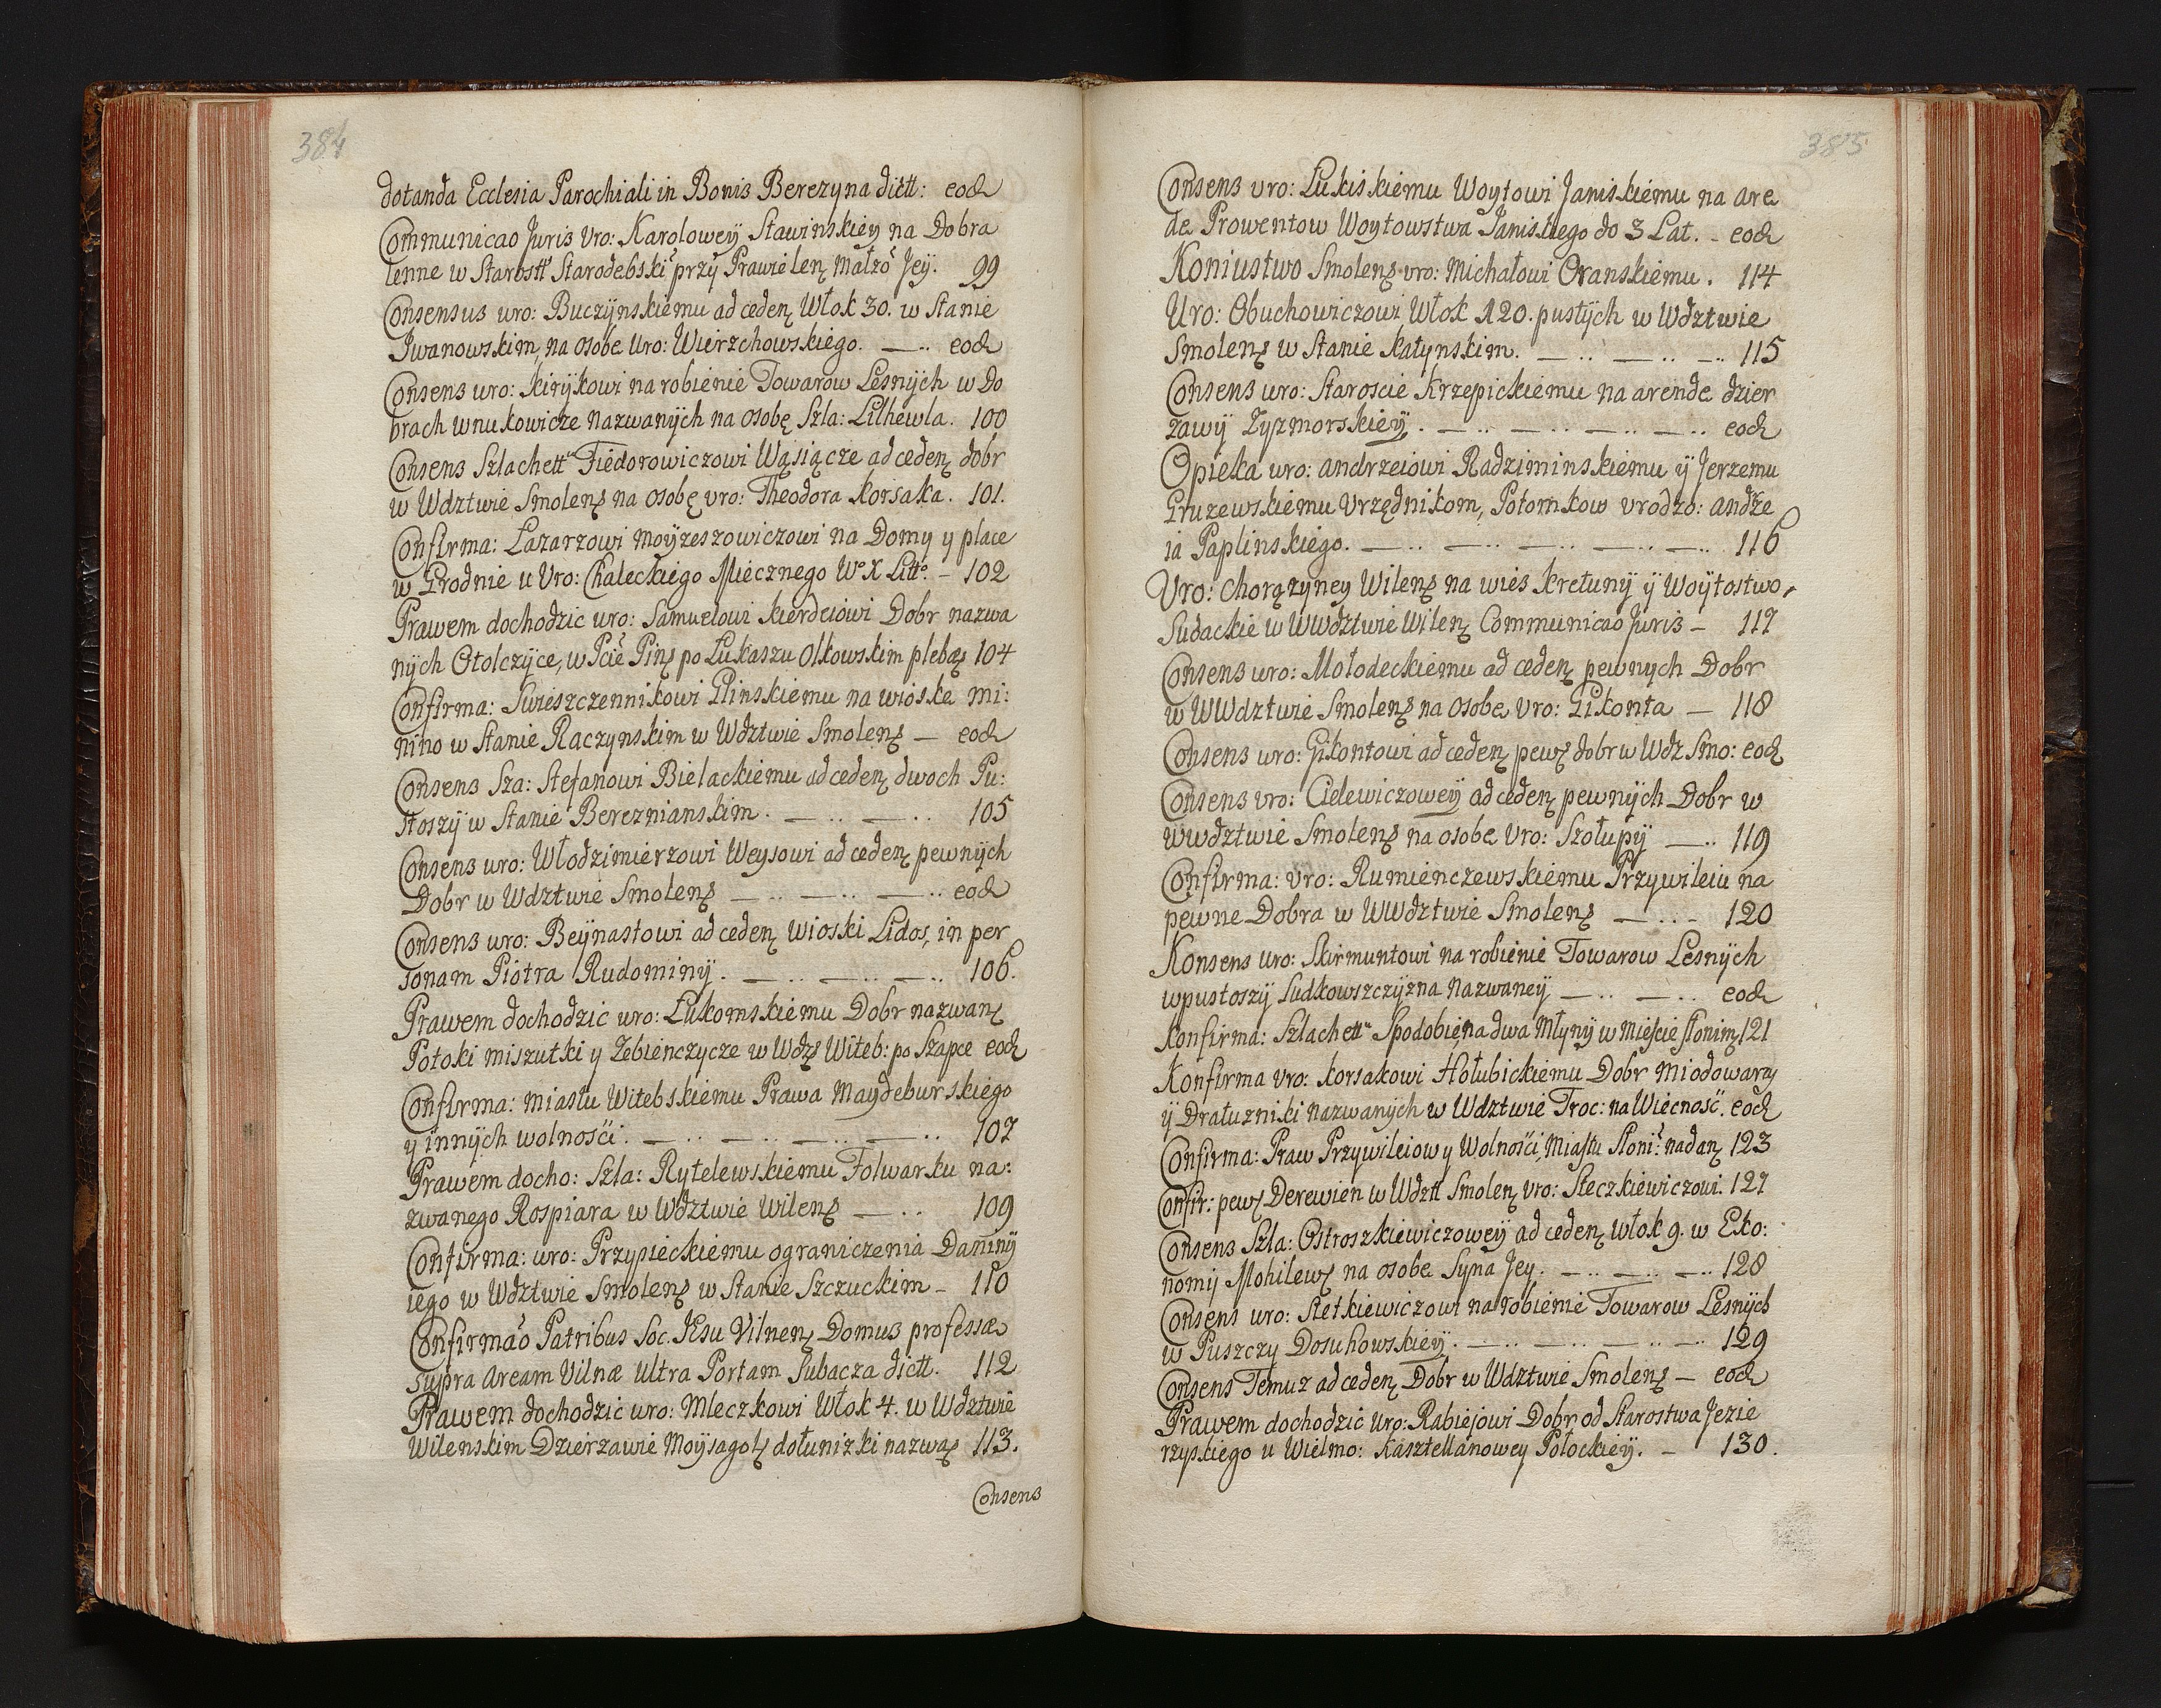 384
dotanda Ecclesia Parochiali in Bonis Berezyna dictt: eod
Communicao Juris vro: Karolowey Stawinskiey na Dobra
lenne w Starostt Starodebski przÿ Prawie len Małżo Jeÿ. 99
Consensus uro: Buczÿnskiemu ad ceden Włok 30. w Stanie
Iwanowskim na osobe Uro: Wierzchowskiego. — .. eod
Consens uro: Kirÿkowi na robienie Towarow Lesnÿch w Do
brach wnukowicze nazwanÿch na osobę Szla: Lilhewla. 100
Consens Szlachett Fiedorowiczowi Wąsiącze ad ceden dobr
w Wdztwie Smolens na osobę vro: Theodora Korsaka. 101.
Confirma: Lazarzowi Moÿzeszowiczowi na Domy y place
w Grodnie u Vro: Chaleckiego Miecznego Wo X Litto. – 102
Prawem dochodzic uro: Samuelowi Kierdeiowi Dobr nazwa
nÿch Otolczÿce, w Pcie Pins po Łukaszu Olkowskim pleba 104
Confirma: Swieszczennikowi Glinskiemu na wioske Mi:
nino w Stanie Raczynskim w Wdztwie Smolens — eod
Consens Sza: Stefanowi Bielackiemu ad ceden dwoch Pu:
stoszÿ w Stanie Bereznianskim. — .. — .. 105
Consens uro: Włodzimierzowi Weysowi ad ceden pewnÿch
Dobr w Wdztwie Smolens — .. — .. — .. eod
Consens uro: Beÿnastowi ad ceden wioski Lidos, in per
sonam Piotra Rudominÿ. — .. — .. — .. 106.
Prawem dochodzic uro: Łukomskiemu Dobr nazwan
Potoki miszutki y Zebienczycze w Wdz Witeb: po Szapce eod
Confirma: miastu Witebskiemu Prawa Maydeburskiego
y innÿch wolnosci. — .. — .. — .. — .. 107
Prawem docho: Szla: Rytelewskiemu Folwarku na:
zwanego Rospiara w Wdztwie Wilens — .. 109
Confirma: uro: Przypieckiemu ograniczenia Daninÿ
iego w Wdztwie Smolens w Stanie Szczuckim – 110
Confirmao Patribus Soc. Jesu Vilnen Domus professæ
supra Aream Vilnæ ultra Portam Subacza dictt. 112
Prawem dochodzic uro: Mleczkowi Włok 4. w Wdztwie
Wilenskim Dzierzawie Moÿsagols dołunizki nazwa 113.
Consens
385
Consens vro: Lukiskiemu Woytowi Janiskiemu na are
de Prowentow Woytowstwa Janiskiego do 3 Lat. – eod
Koniustwo Smolens vro: Michałowi Oranskiemu. 114
Uro: Obuchowiczowi Włok 120. pustÿch w Wdztwie
Smolens w Stanie Katynskim. — .. — .. – .. 115
Consens uro: Staroscie Krzepickiemu na arende dzier
zawÿ Zyzmorskieÿ. — .. — .. — .. — .. eod
Opieka uro: Andrzeiowi Radziminskiemu ÿ Jerzemu
Gruzewskiemu Vrzędnikom, Potomkow vrodzo: Andrze
ia Paplinskiego. — .. — .. — .. — .. — .. 116
Vro: Chorązyney Wilens na wies Kretunÿ ÿ Woÿtostwo,
Sudackie w WWdztwie Wilen Communicao Juris – 117
Consens uro: Mołodeckiemu ad ceden pewnych Dobr
w WWdztwie Smolens na osobe Vro: Gikonta — 118
Consens uro: Gikontowi ad ceden pews dobr w Wdz Smo: eod
Consens vro: Cielewiczoweÿ ad ceden pewnÿch Dobr w
WWdztwie Smolens na osobe Vro: Szołupÿ — .. 119
Confirma: Vro: Rumienczewskiemu Przywileiu na
pewne Dobra w WWdztwie Smolens — .. – 120
Konsens Uro: Skirmuntowi na robienie Towarow Lesnÿch
w pustoszÿ Ludkowszczyzna nazwaneÿ — .. — .. eod
Konfirma: Szlachett Spodobie, na dwa Młÿnÿ w Mieście słonim 121
Konfirma vro: Korsakowi Hołubickiemu Dobr Miodowary
ÿ Dratuzniki nazwanÿch w Wdztwie Troc: na Wiecnosč. eod
Confirma: Praw Przywileiow y Wolnosci, Miastu Słoni: nadan 123
Confir: pews Derewien w Wdztt Smolen vro: Steczkiewiczowi. 127
Consens Szla: Ostroszkiewiczoweÿ ad ceden włok 9. w Eko:
nomÿ Mohilews na osobe Syna Jey. — .. — .. — .. 128
Consens uro: Stetkiewiczowi na robienie Towarow Lesnÿch
w Puszczy Dosuhowskieÿ. — .. — .. — .. — .. 129
Consens Temuz ad ceden Dobr w Wdztwie Smolens — eod
Prawem dochodzic uro: Rabiejowi Dobr od Starostwa Jezie
rzyskiego u Wielmo: Kasztellanowey Połockieÿ. – 130.